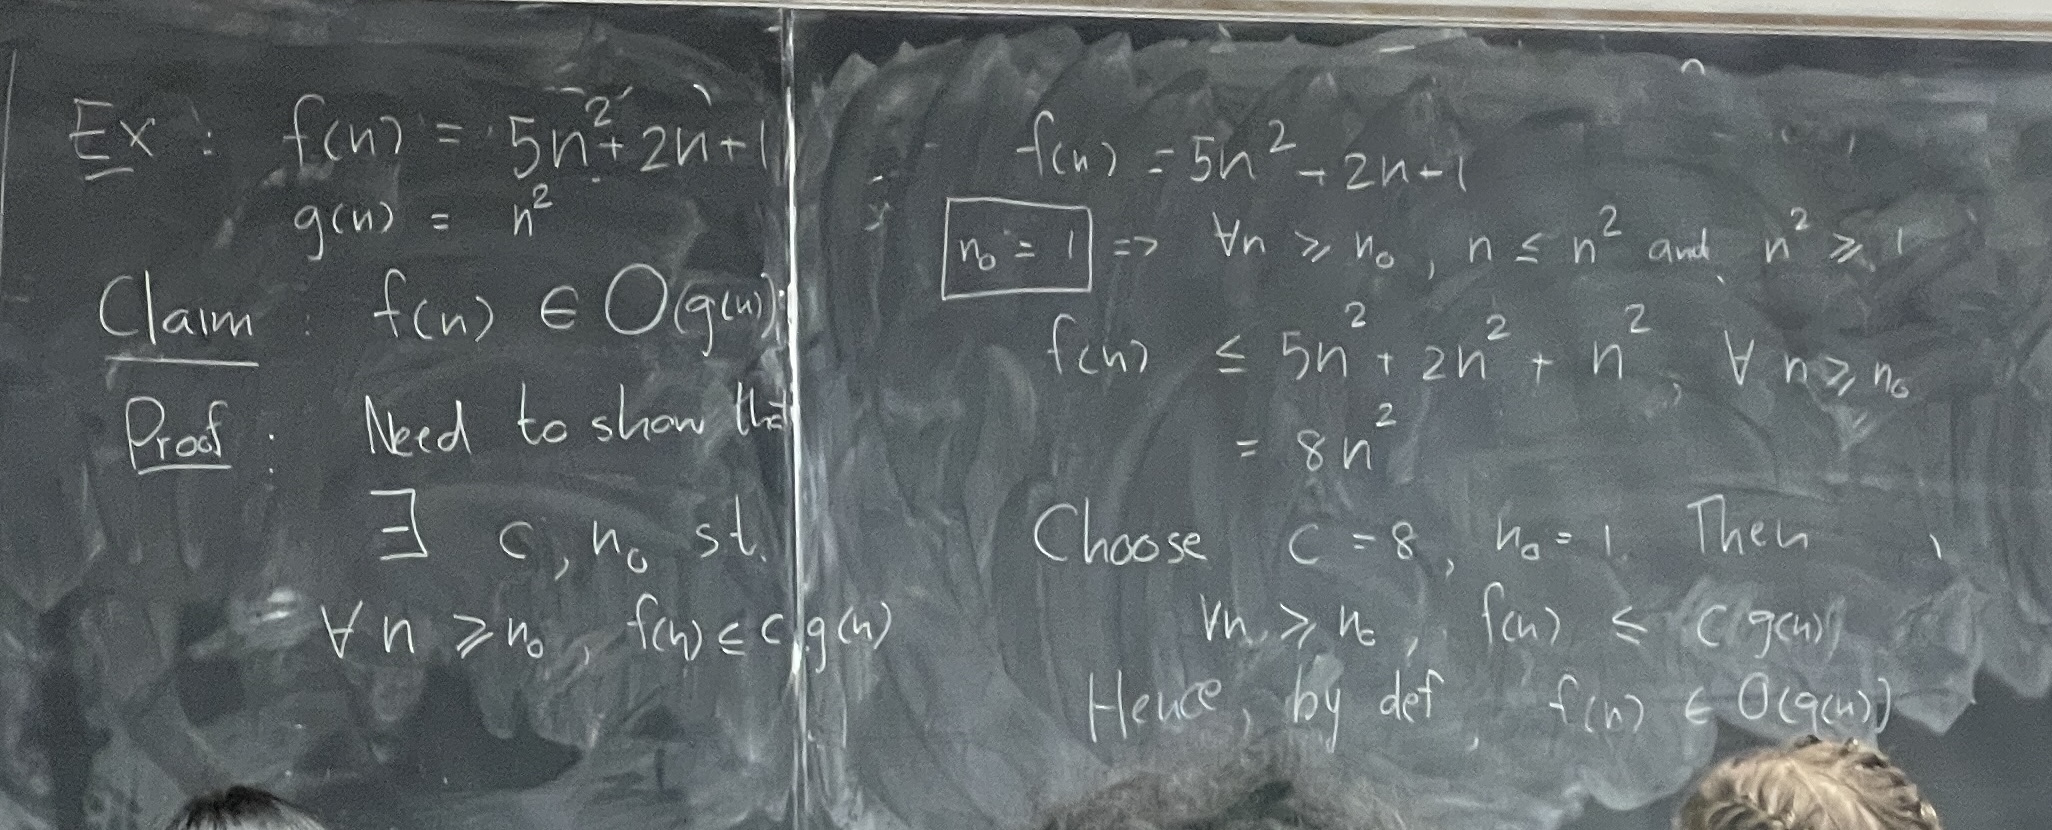 Ex : f(n) = 5n²+2n+1
g(n) = n²
Claim : f(n) ∈ O(g(n))
Proof : Need to show that
∃ c, n₀ st.
∀ n ⩾ n₀, f(n) ≤ c.g(n)
f(n) = 5n² + 2n+1
n₀ = 1 => ∀n ⩾ n₀, n ≤ n² and n² ⩾ 1
f(n) ≤ 5n² + 2n² + n², ∀ n ⩾ n₀
= 8n²
Choose c = 8, n₀ = 1. Then
∀n ⩾ n₀, f(n) ≤ c g(n)
Hence, by def, f(n) ∈ O(g(n))